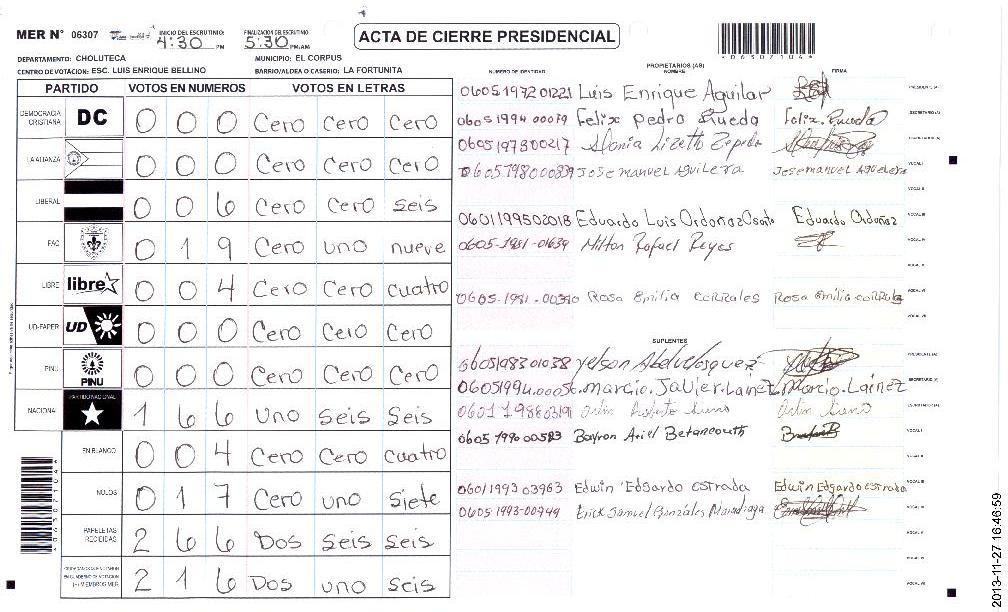 MER N° 06307 INICIO DEL ESCRUTINIO: 4:30 PM FINALIZACION DEL ESCRUTINIO 5:30 PM/AM
ACTA DE CIERRE PRESIDENCIAL
06307104
DEPARTAMENTO: CHOLUTECA MUNICIPIO: EL CORPUS
CENTRO DE VOTACION: ESC. LUIS ENRIQUE BELLINO BARRIO/ALDEA O CASERIO: LA FORTUNITA
PARTIDO VOTOS EN NUMEROS VOTOS EN LETRAS
DEMOCRACIA CRISTIANA DC 0 0 0 Cero Cero Cero
LA ALIANZA 0 0 0 Cero Cero Cero
LIBERAL 0 0 6 Cero Cero seis
PAC 0 1 9 Cero uno nueve
LIBRE libre 0 0 4 Cero Cero cuatro
UD-FAPER UD 0 0 0 Cero Cero Cero
PINU PINU 0 0 0 Cero Cero Cero
NACIONAL PARTIDO NACIONAL 1 6 6 uno seis seis
EN BLANCO 0 0 4 Cero Cero cuatro
NULOS 0 1 7 Cero uno siete
PAPELETAS RECIBIDAS 2 6 6 Dos seis seis
CIUDADANOS QUE VOTARON EN CUADERNO DE VOTACION (+) MIEMBROS MER 2 1 6 Dos uno seis
PROPIETARIOS (AS)
NUMERO DE IDENTIDAD NOMBRE FIRMA
0605197201221 Luis Enrique Aguilar PRESIDENTE (A)
0605 1994 00079 Felix Pedro Rueda Felix. Rueda SECRETARIO (A)
0605197800217 Maria Lizeth Zepeda ESCRUTADOR (A)
0605198000839 Jose manuel Aguilera Jose manuel Aguilera VOCAL I
VOCAL II
0601199502018 Eduardo Luis Ordoñez Eduardo Ordoñez VOCAL III
0605-1981-01639 Milton Rafael Reyes VOCAL IV
VOCAL V
0605-1981-00390 Rosa Emilia corrales Rosa Emilia corrales VOCAL VI
VOCAL VII
SUPLENTES
0605198301038 Yelson PRESIDENTE (A)
06051994.00056 marcio. Javier. Lainez Marcio. Láinez SECRETARIO (A)
0601198803191 ESCRUTADOR (A)
0605 1990 00583 Bayron Ariel Betancourth VOCAL I
VOCAL II
0601199303963 Edwin Edgardo estrada Edwin Edgardo estrada VOCAL III
0605-1993-00949 Erick Samuel Gonzales VOCAL IV
VOCAL V
VOCAL VI
VOCAL VII
2013-11-27 16:46:59